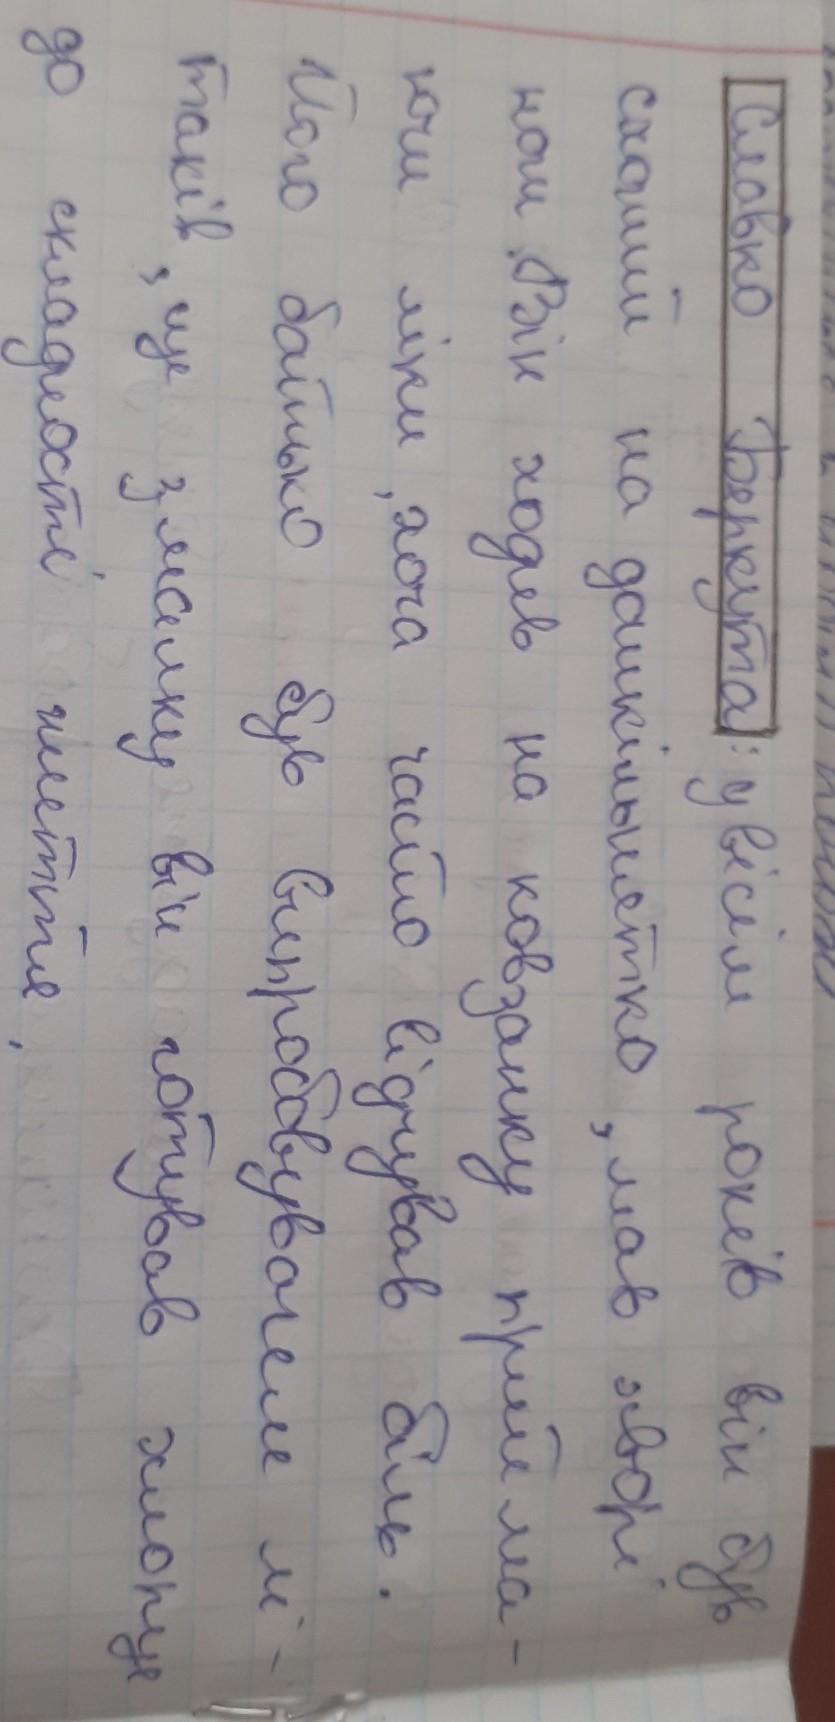 Славко Беркута: у вісім років він був
схожий на дошкільнятко, мав хворі
ноги. Він ходив на ковзанку прийма-
ючи ліки, хоча часто відчував біль.
Його батько був випробовувачем лі-
таків, ще змалку він готував хлопця
до складності життя.